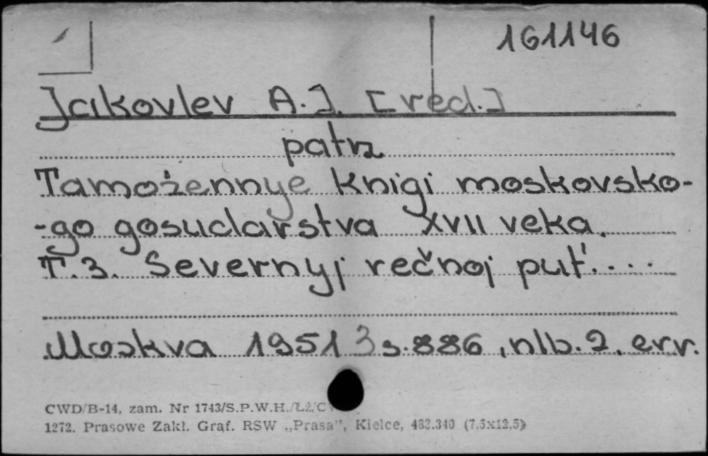 161146
Jakovlev A.J. [red.]
patrz
Tamožennye knigi moskovsko-
-go gosudarstva XVII veka.
T.3. Severnyj rečnoj put'....
Moskva 1951 3 s.886, nlb.2. err.
CWD/B-14, zam. Nr 1743/S.P.W.H.
1272. Prasowe Zakł. Graf. RSW „Prasa”, Kielce, 482.340 (7,5x12,5)